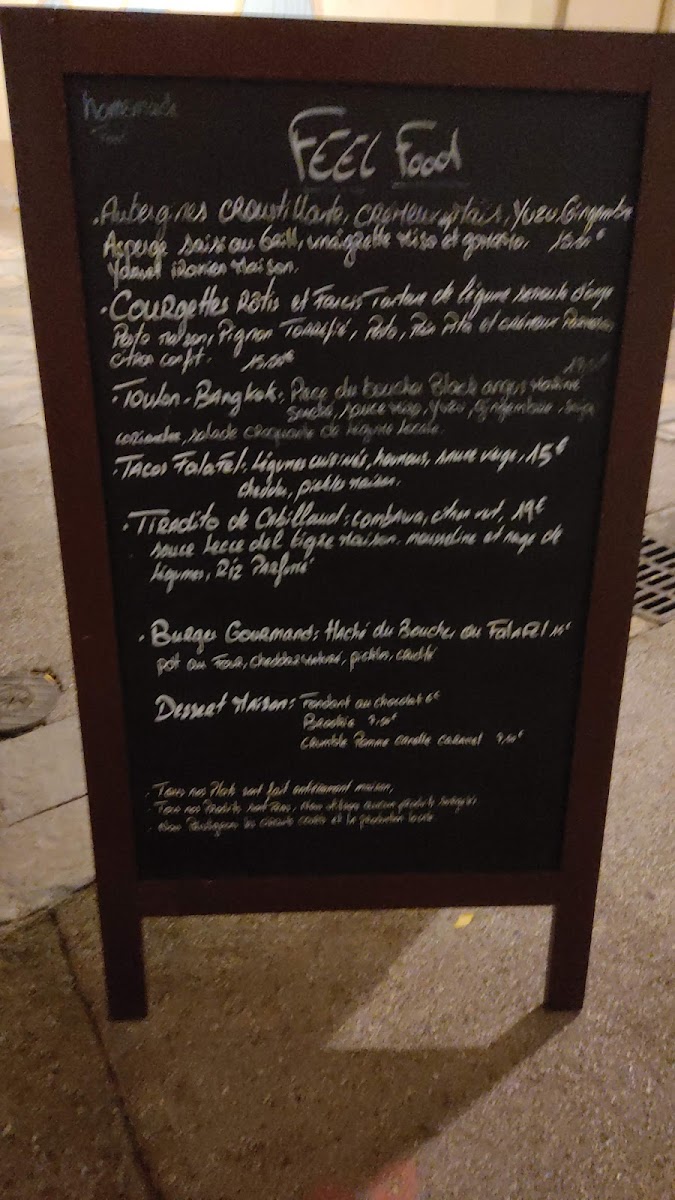 homemade
Food
FEEL Food
. Aubergines CROUSTILLante, , Yuzu Gingembre
Asperge saisi au Grill, vinaigrette miso et gomasio.
iranien Maison.
. COURGETTES Rôtis et Farcis Tartare de légume
Pesto maison, Pignon Torréfié, Pesto, Pita et crémeux
citron confit. 15.00€
. TOULON-BANGKOK: Pièce du boucher Black angus
sauce , yuzu, gingembre, soja
coriandre, salade croquante de légume locale.
. TACOS FALAFEL: légumes cuisinés, houmous, sauce , 15€
cheddar, pickles maison.
. TIRADITO de Cabillaud: combawa, citron vert, 19€
sauce lecce del tigre Maison. mousseline et de
légumes, Riz Parfumé
. BURGER GOURMAND: Haché du Boucher ou FalaFEl
cheddar , pickles,
Dessert Maison: Fondant au chocolat 6€
Brookie
Crumble Pomme canelle caramel
. Tous nos Plats sont fait entièrement maison,
. Tous nos Produits sont . Nous aucun produits
. Nous les circuits courts et la production locale.